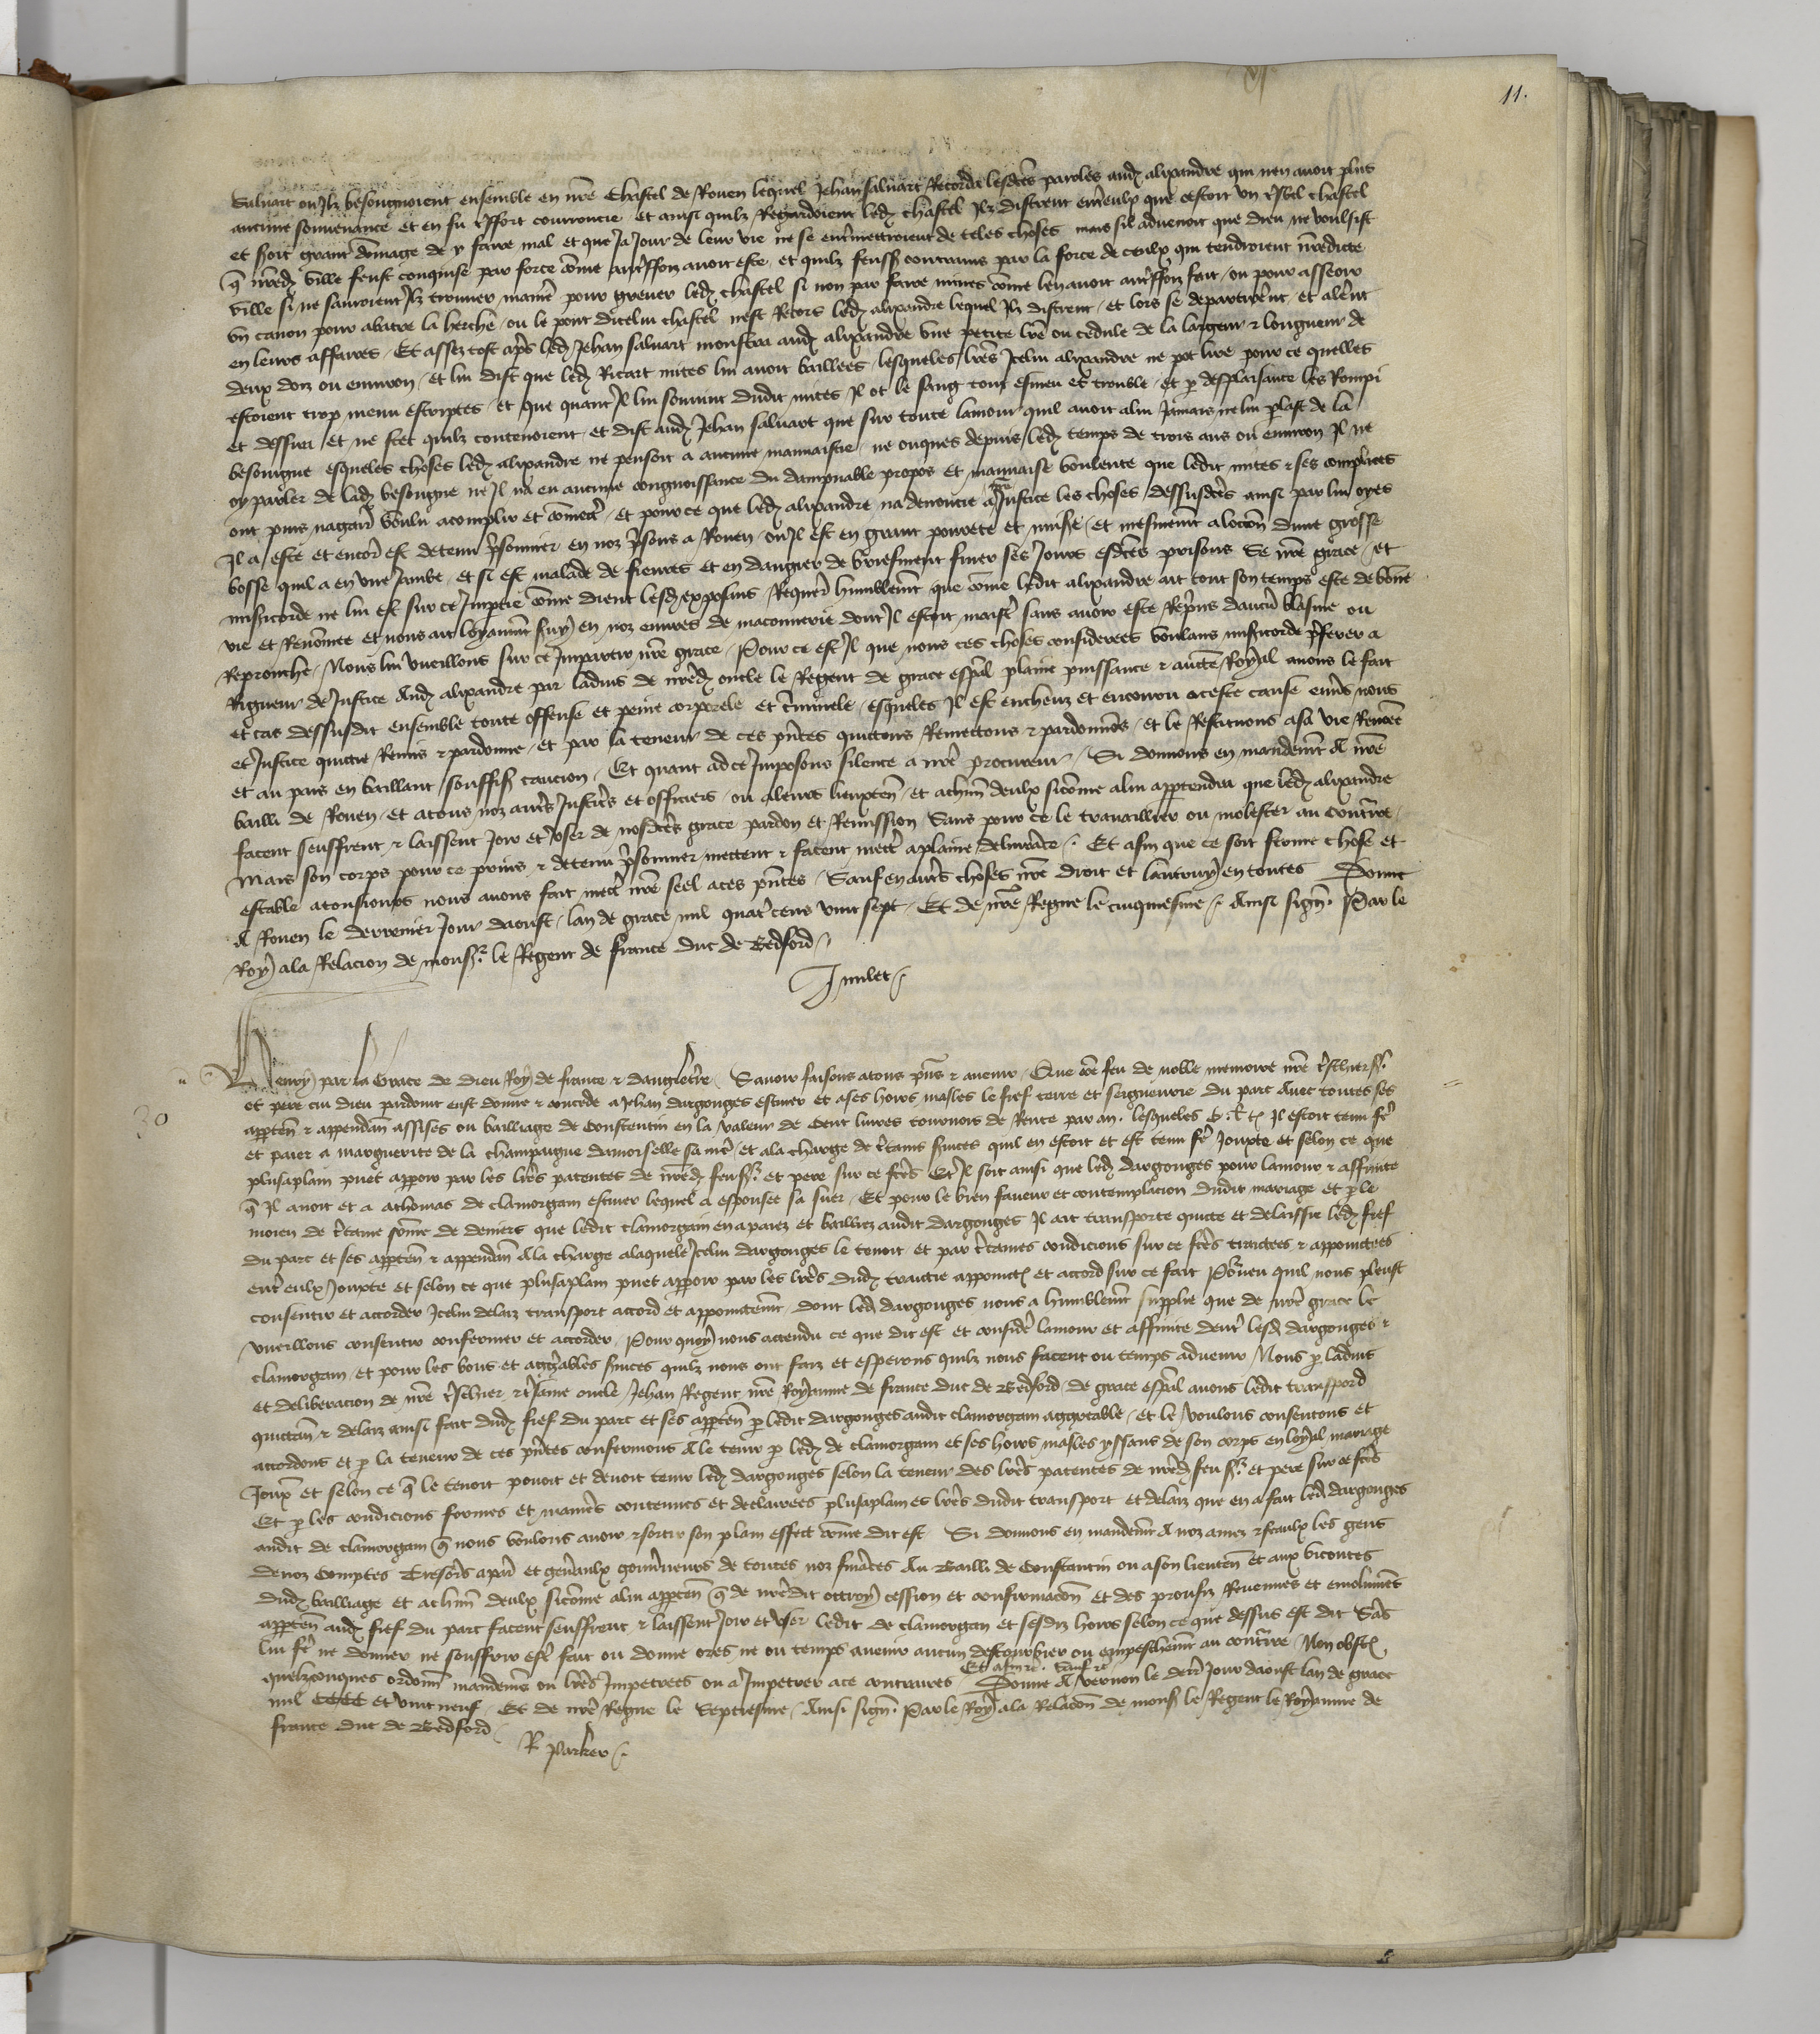 11.
Saluart ou Ilz besongnoient ensemble en nr̃e Chastel de Rouen lequel Jehan saluart Recorda lesdc̃es paroles aud̃ alixandre qui nen auoit plus
aucune souuenance et en fu tresfort courroucie et ainsi quilz Regardoient led̃ chastel Ilz distrent entr̃eulx que cestoit vn tresbel chastel
et seroit grant dõmage de y faire mal et que Ja Jour de leur vie ne se entr̃mettroient de teles choses mais sil aduenoit que dieu ne voulsist
q̃ nr̃ed̃ ville feust conquise par force cõme autr̃effoiz auoit este et quilz feuss̃ contrains par la force de ceulx qui tendroient nr̃edicte
ville si ne sauroient Ilz trouuer manier̃ pour greuer led̃ chastel si non par faire mines cõme len auoit autr̃effoiz fait ou pour asseoir
vn canon pour abatre la herche ou le pont dicelui chastel nest Recors led̃ alixandre lequel Ilz distrent et lors se departir̃ent et aler̃ent
en leurs affaires Et assez tost apr̃s led̃ Jehan saluart monstra aud̃ alixandre vne petite lr̃e ou cedule de la largeur & longueur de
deux doiz ou enuiron et lui dist que led̃ Ricart mites lui auoit baillees lesqueles lr̃es Icelui alixandre ne pot lire pour ce quelles
estoient trop menu escriptes et que quant Il lui souuint dudit mites Il ot le sang tout esmeu et trouble et p̱ desplaisance les Rompi
et dessira et ne scet quilz contenoient et dist aud̃ Jehan saluart que sur toute lamour quil auoit alui Jamais ne lui parlast de la
besongne esqueles choses led̃ alixandre ne pensoit a aucune mauuaistie ne onques depuis led̃ temps de trois ans ou enuiron Il ne
oy parler de lad̃ besongne ne Il na eu aucune congnoissance du dampnable propos et mauuaise voulente que ledit mites & ses complices
ont puis nagair̃ voulu acomplir et cõmettr̃ et pour ce que led̃ alixandre na denoncie a Justice les choses dessusdc̃es ainsi par lui oyes
Il a este et encor̃ est detenu pr̃isonnier en noz pr̃isons a Rouen ou Il est en grant pourete et miser̃ et mesmem̃t aloccõn dune grosse
bosse quil a en vne Jambe et si est malade de fieures et en dangier de briefment finer ses Jours esdc̃es prisons Se nr̃e grace et
misericorde ne lui est sur ce Impartie cõme dient lesd̃ exposans Requer̃ humblem̃t que cõme ledit alixandre ait tout son temps este de bõne
vie et Renõmee et nous ait loyaum̃t seruy en noz euures de maconnerie dont Il estoit maistr̃ sans auoir este Repr̃ins daucũ blasme ou
Reprouche Nous lui vueillons sur ce Impartir nr̃e grace Pour ce est Il que nous ces choses considerees voulans misericorde pr̃eferer a
Rigueur de Justice Aud̃ alixandre par laduis de nr̃ed̃ oncle le Regent de grace esp̃al plaine puissance & auct̃e Royal auons le fait
et cas dessusdit ensemble toute offense et peine corporele et cr̃iminele esqueles Il est encheuz et encouru aceste cause enuer̃s nous
et Justice quictie Remis & pardonne et par la teneur de ces pñtes quictons Remettons & pardonnõs et le Restituons asa vie Renõmee
et au pais en baillant souffis̃ caucion Et quant adce Imposons silence a nr̃e procureur Si donnons en mandem̃t A nr̃e
bailli de Rouen et atous noz autr̃s Justicr̃s et officiers ou aleurs lieuxteñ et achũn deulx sicõme alui appartendra que led̃ alixandre
facent seuffrent & laissent Joir et vser de nosdc̃es grace pardon et Remission Sans pour ce le trauaillier ou molester au contr̃aire
Mais son corps pour ce prins & detenu pr̃isonnier mettent & facent mettr̃ aplaine deliur̃ace Et afin que ce soit ferme chose et
estable atousiours nous auons fait mettr̃ nr̃e seel aces pñtes Sauf en autr̃s choses nr̃e droit et lautruy en toutes Donne
A Rouen le derrenier Jour daoust lan de grace mil quatr̃ cens vint sept Et de nr̃e Regne le cinquiesme Ainsi signe̾. Par le
Roy ala Relacion de mons.r le Regent de france duc de Bedford
Jmilet
Henry par la Grace de dieu Roy de france & dangleterr̃e Sauoir faisons atous pñs & auenir Que cõe feu de noble memoire nr̃e tr̃eschier s.r
et pere cui dieu pardonit eust donne & concede a Jehan dargonges escuier et ases hoirs masles le fief terre et seigneurie du parc Auec toutes ses
30
apparteñ & appendañ assises ou bailliage de Constentin en la valeur de Cent liures tournois de Rente par an lesqueles C l t̃ Il estoit tenu fr̃e
et paier a marguerite de la champaigne damoiselle sa mer̃e et ala charge de cr̃tains seruices quil en estoit et est tenu fr̃e Jouxte et selon ce que
plusaplain puet apparoir par les lr̃es patentes de nr̃ed̃ feu s.r et pere sur ce fc̃es Et Il soit ainsi que led̃ dargonges pour lamour & affinite
q̃ Il auoit et a athomas de clamorgam escuier lequel a espousee sa suer Et pour le bien faueur et contemplacion dudit mariage et p̱ le
moien de cr̃taine sõme de deniers que ledit clamorgam en a paiez et bailliez audit dargonges Il ait transporte quicte et delaissie led̃ fief
du parc et ses apparteñ & appendañ A la charge alaquele Icelui dargonges le tenoit et par cr̃taines condicions sur ce fc̃es traictees & appoinctees
entr̃ eulx Jouxte et selon ce que plusaplain puet apparoir par les lr̃es dud̃ traictie appoinct̃ et accord sur ce fait Pourueu quil nous pleust
consentir et accorder Icelui delaiz transport accord et appoinctem̃t dont led̃ dargonges nous a humblem̃t supplie que de nr̃e grace le
vueillons consentir confermer et accorder Pour quoy nous actendu ce que dit est et consider̃ lamour et affinite dentr̃ lesd̃ dargonges &
clamorgam et pour les bons et aggr̃eables seruices quilz nous ont faiz et esperons quilz nous facent ou temps aduenir Nous p̱ laduis
et deliberacion de nr̃e tr̃eschier & tr̃esame oncle Jehan Regent nr̃e Royaume de france duc de Bedford de grace esp̃al auons ledit transpord
quictañ & delaiz ainsi fait dud̃ fief du parc et ses apparteñ p̱ ledit dargonges audit clamorgam aggreable et le voulons consentons et
accordons et p̱ la teneur de ces pñtes confermons A le tenir p̱ led̃ de clamorgam et ses hoirs masles yssans de son corps en loyal mariage
Joux̃ et selon ce q̃ le tenoit pouoit et deuoit tenir led̃ dargonges selon la teneur des lr̃es patentes de nr̃ed̃ feu s.r et pere sur ce fc̃es
Et p̱ les condicions formes et manier̃s contenues et declairees plusaplain es lr̃es dudit transport et delaiz que en a fait led̃ dargonges
audit de clamorgam q̃ nous voulons auoir & sortir son plain effect cõme dit est Si donnons en mandem̃t A noz amez & feaulx les gens
de noz Comptes Tresor̃s apar̃ et gen̾aulx gouu̾neurs de toutes noz finãces Au Bailli de Constantin ou a son lieuteñ et aux vicontes
dud̃ bailliage et achũn deulx sicõme alui apparteñ q̃ de nr̃edit ottroy cession et confirmacõn et des proufiz Reuenues et emolumẽs
apparteñ aud̃ fief du parc facent seuffrent & laissent Joir et vser ledit de clamorgan et sesdiz hoirs selon ce que dessus est dit Sãs
lui fr̃e ne donner ne souffrir estr̃ fait ou donne ores ne ou temps auenir aucun destourbier ou empeschem̃t au contr̃aire Non obst̃
quelzconques ordonñ mandem̃s ou lr̃es Impetrees ou a Impetrer ace contraires Et afin &c. Sauf &c Donne A vernon le derr̃ Jour daoust lan de grace
mil CCCC et vint neuf Et de nr̃e Regne le Septiesme Ainsi signe̾. Par le Roy ala Relacõn de mons̃ le Regent le Royaume de
france duc de Bedford
R parker